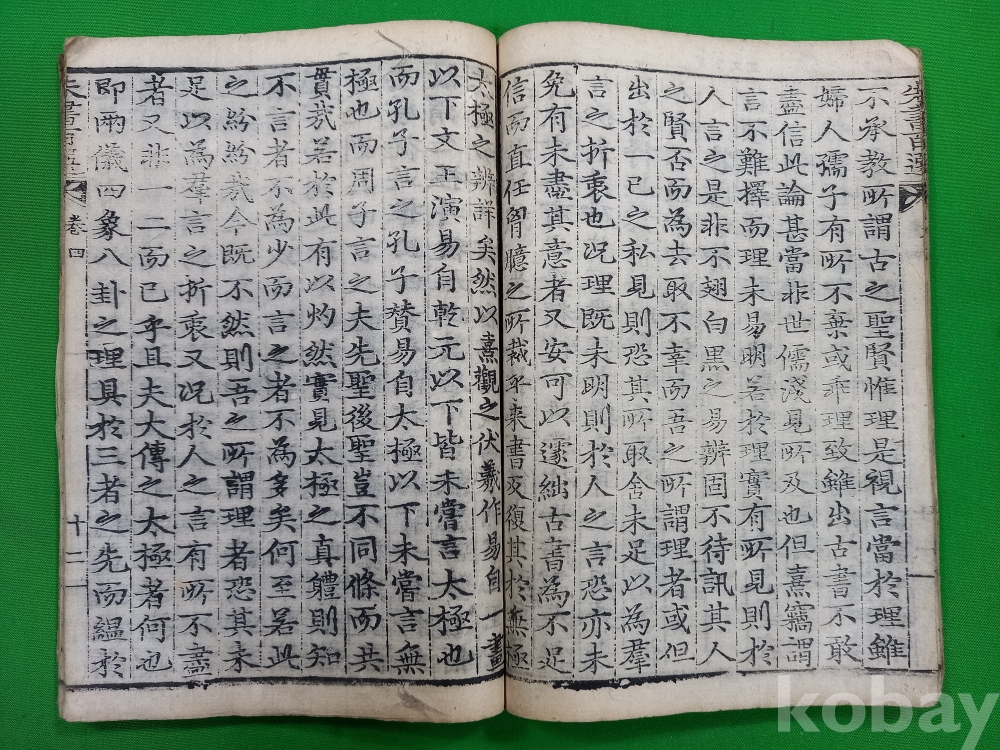 朱書百選
不承教所謂古之聖賢惟理是視言當於理雖
婦人孺子有所不棄或乖理致雖出古書不敢
盡信此論甚當非世儒淺見所及也但熹竊謂
言不難擇而理未易明若於理實有所見則於
人言之是非不翅白黑之易辨固不待訊其人
之賢否而為去取不幸而吾之所謂理者或但
出於一己之私見則恐其所取舍未足以為羣
言之折衷也况理既未明則於人之言恐亦未
免有未盡其意者又安可以遽絀古書為不足
信而直任胷臆之所裁乎来書反復其於無極
太極之辨詳矣然以熹觀之伏羲作易自一畫
以下文王演易自乾元以下皆未嘗言太極也
而孔子言之孔子賛易自太極以下未嘗言無
極也而周子言之夫先聖後聖豈不同條而共
貫哉若於此有以灼然實見太極之真軆則知
不言者不為少而言之者不為多矣何至若此
之紛紛哉今既不然則吾之所謂理者恐其未
足以為羣言之折衷又况於人之言有所不盡
者又非一二而已乎且夫大傳之太極者何也
即兩儀四象八卦之理具於三者之先而縕於
朱書百選 卷四 十二
kobay